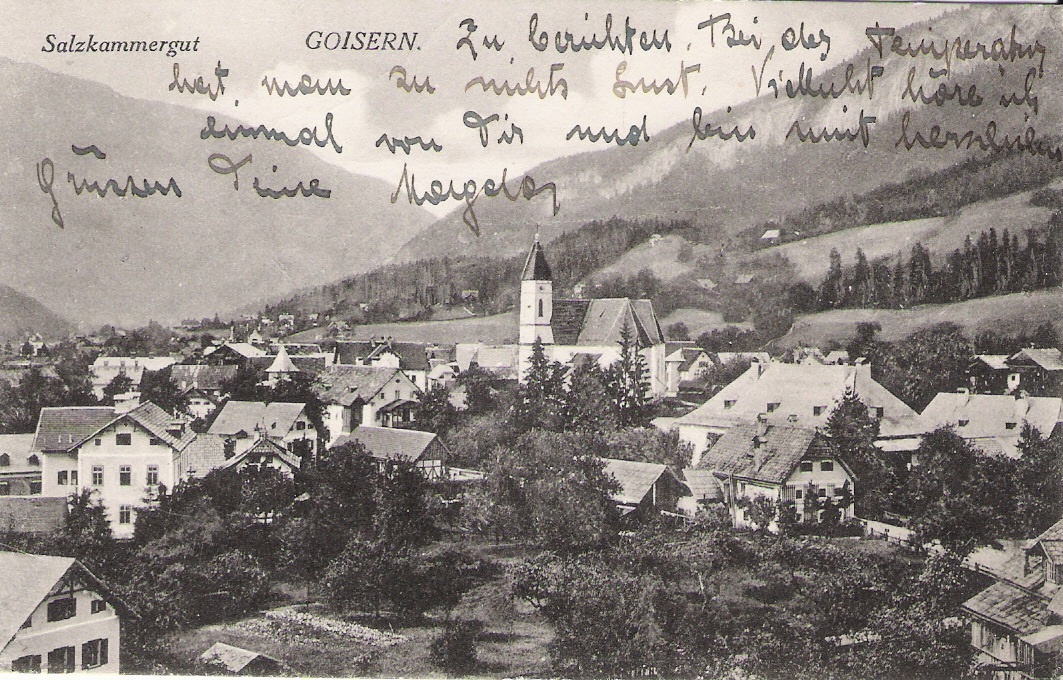 Salzkammergut GOISERN.
zu berichten. Bei der Temperatur
hat man zu nichts Lust. Vielleicht höre ich
einmal von Dir und bin mit herzlichen
Grüssen Deine